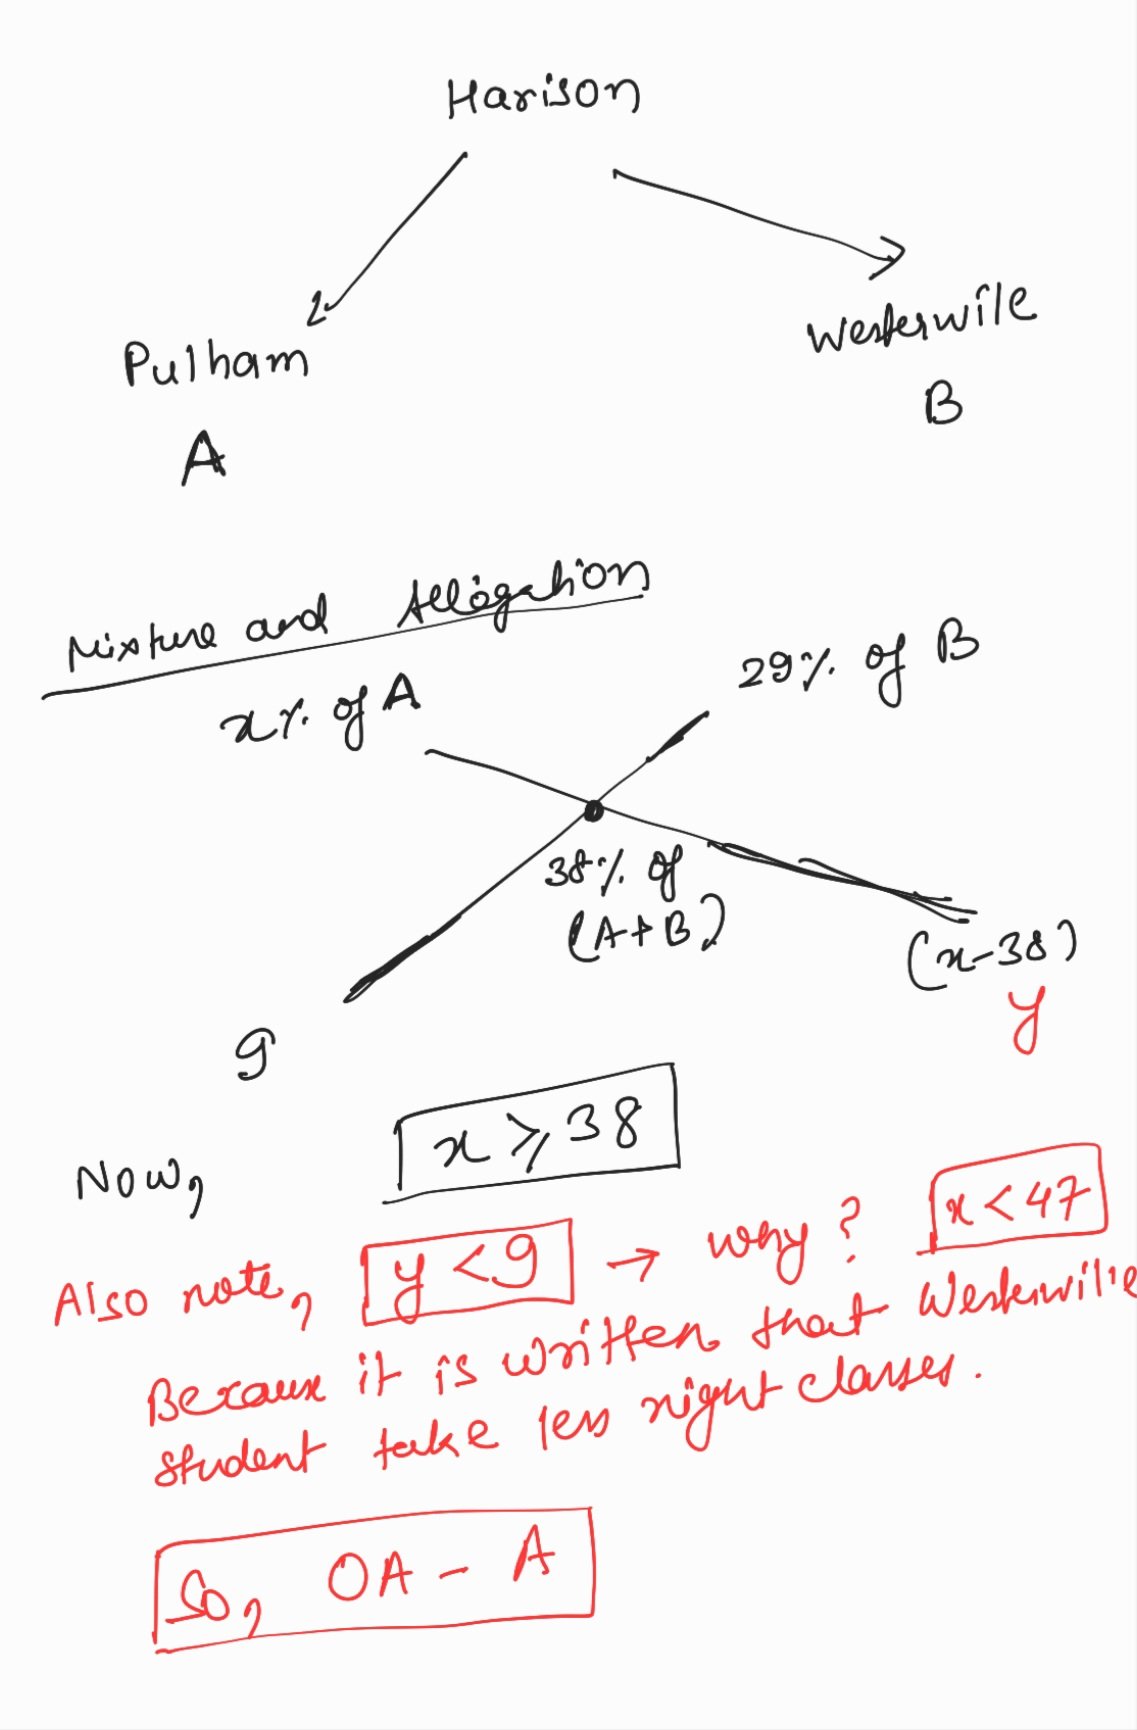 Harison
Pulham
Westerwile
A
B
Mixture and Allegation
x% of A
29% of B
38% of
(A+B)
(x-38)
y
9
Now, x ⩾ 38
x < 47
Also note, y < 9 → why?
Because it is written that Westerwile
student take less night classes.
So, OA - A